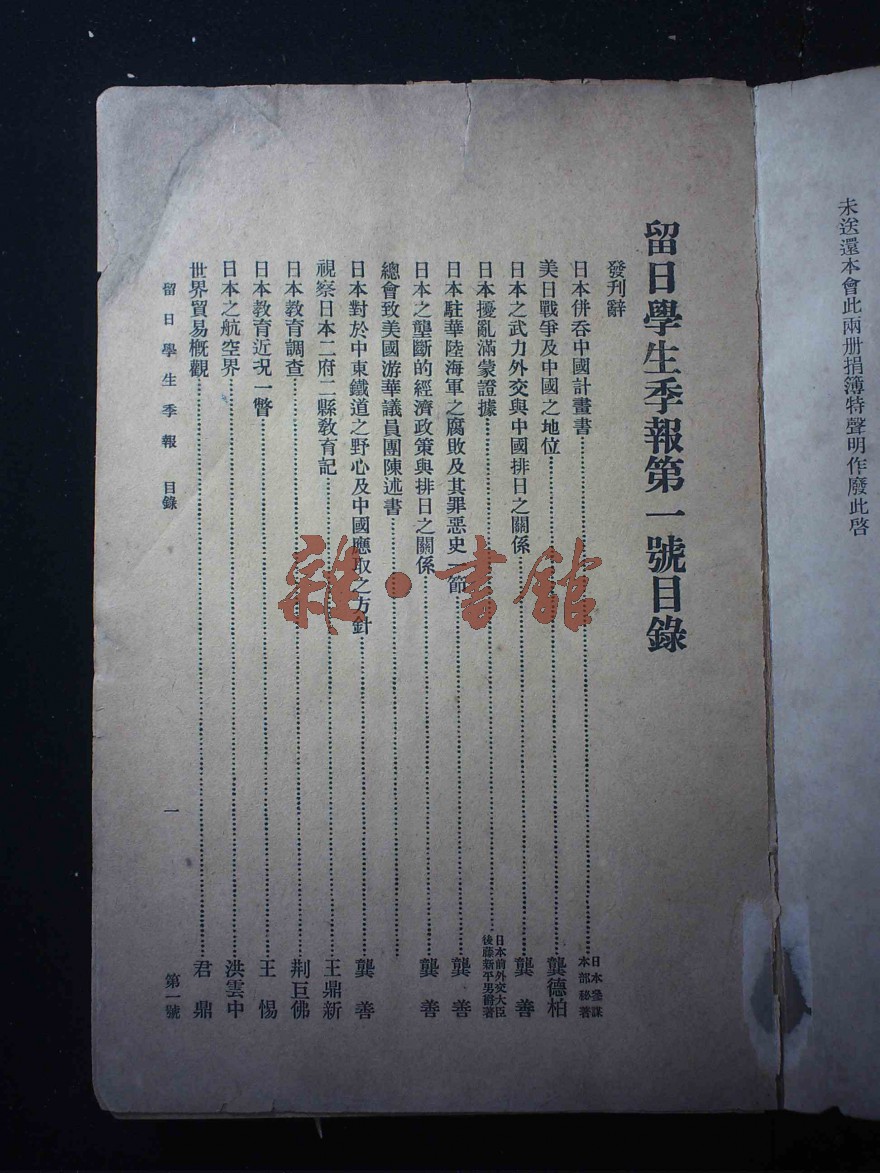 未送還本會此兩册捐簿特聲明作廢此啓
留日學生季報第一號目錄
發刊辭
日本併吞中國計畫書……日本參謀本部祕著
美日戰爭及中國之地位……龔德柏
日本之武力外交與中國排日之關係……龔善
日本擾亂滿蒙證據……日本前外交大臣後藤新平男爵著
日本駐華陸海軍之腐敗及其罪惡史一節……龔善
日本之壟斷的經濟政策與排日之關係……龔善
總會致美國游華議員團陳述書……
日本對於中東鐵道之野心及中國應取之方針……龔善
視察日本二府二縣敎育記……王鼎新
日本敎育調查……荆巨佛
日本敎育近况一瞥……王惕
日本之航空界……洪雲中
世界貿易概觀……君鼎
留日學生季報 目錄 一 第一號
雜·書館